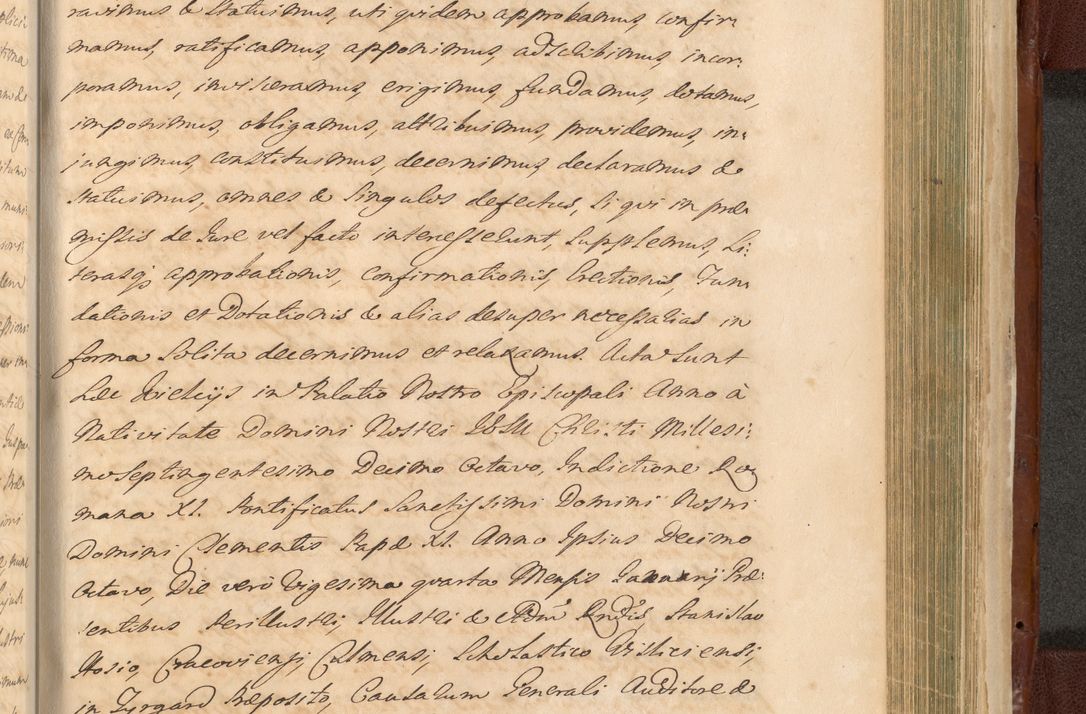 ravimus & statuimus, uti quidem approbamus, confir
mamus, ratificamus, apponimus, adscribimus, incor:
poramus, invisceramus, erigimus, fundamus, dotamus,
imponimus, obligamus, attribuimus, providemus, in:
jungimus, constituimus, decernimus, declaramus &
statuimus, omnes & singulos defectus, si qui in præ
missis de Jure vel facto intercesserunt, supplemus, Li:
terasq; approbationis, confirmationis, Erectionis, Fun
dationis et Dotationis & alias desuper necessarias in
forma solita decernimus et relaxamus. Acta sunt
hæc Kielcijs in Palatio Nostro Episcopali Anno à
Nativitate Domini Nostri IESU Christi Millesi:
mo Septingentesimo Decimo Octavo, Indictione Ro
mana XI. Pontificatus Sanctissimi Domini Nostri
Domini Clementis Papæ XI. Anno Ipsius Decimo
Octavo, Die verò Vigesima quarta Mensis Januarij Præ:
sentibus Perillustri, Illustri & Adm Rndis Stanislao
Hosio, Cracoviensi, Culmensi, Scholastico Visliciensi,
in Præposito, Causarum Generali Auditore &
plici